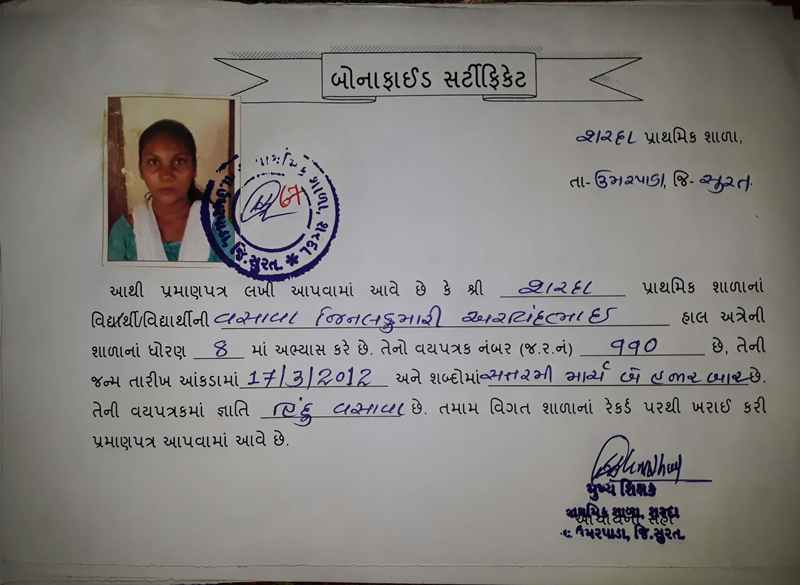 બોનાફાઈડ સર્ટીફિકેટ
શરદા પ્રાથમિક શાળા,
તા- ઉમરપાડા, જિ- સુરત.
આથી પ્રમાણપત્ર લખી આપવામાં આવે છે કે શ્રી શરદા પ્રાથમિક શાળાનાં
વિદ્યાર્થી/વિદ્યાર્થીની વસાવા જિનલકુમારી અરવિંદભાઈ હાલ અત્રેની
શાળાનાં ધોરણ 8 માં અભ્યાસ કરે છે. તેનો વયપત્રક નંબર (જ.ર.નં) ૧૧૦ છે, તેની
જન્મ તારીખ આંકડામાં 17/3/2012 અને શબ્દોમાં સત્તરમી માર્ચ બે હજાર બાર છે.
તેની વયપત્રકમાં જ્ઞાતિ હિંદુ વસાવા છે. તમામ વિગત શાળાનાં રેકર્ડ પરથી ખરાઈ કરી
પ્રમાણપત્ર આપવામાં આવે છે.
મુખ્ય શિક્ષક
પ્રાથમિક શાળા, શરદા
આચાર્યની સહી
તા. ઉમરપાડા, જિ.સુરત.